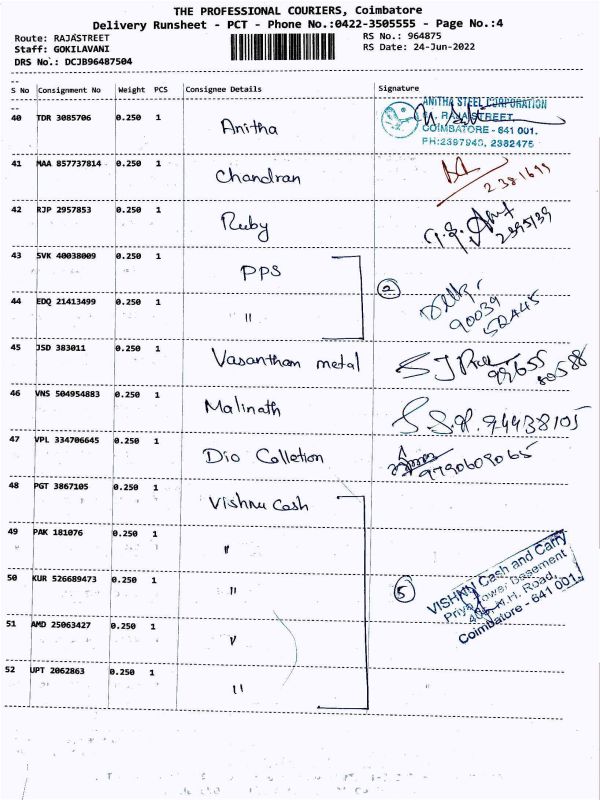 THE PROFESSIONAL COURIERS, Coimbatore
Delivery Runsheet - PCT - Phone No.:0422-3505555 - Page No.:4
Route: RAJASTREET RS No.: 964875
Staff: GOKILAVANI RS Date: 24-Jun-2022
DRS No.: DCJB96487504
S No Consignment No Weight PCS Consignee Details Signature
40 TDR 3085706 0.250 1 Anitha
ANITHA STEEL CORPORATION
RAJA STREET,
COIMBATORE - 641 001.
PH:2397943, 2382475
41 MAA 857737814 0.250 1 Chandran 2381699
42 RJP 2957853 0.250 1 Ruby 2395139
43 SVK 40038009 0.250 1 PPS
2
44 EDQ 21413499 0.250 1 "
90039
52445
45 JSD 383011 0.250 1 Vasantham metal 99655
80588
46 VNS 504954883 0.250 1 Malinath 74438105
47 VPL 334706645 0.250 1 Dio Colletion 9790609065
48 PGT 3867105 0.250 1 Vishnu Cash
49 PAK 181076 0.250 1 "
50 KUR 526689473 0.250 1 "
5
VISHNU Cash and Carry
Priya Tower Basement
N.H. Road,
Coimbatore - 641 001.
51 AMD 25063427 0.250 1 "
52 UPT 2062863 0.250 1 "